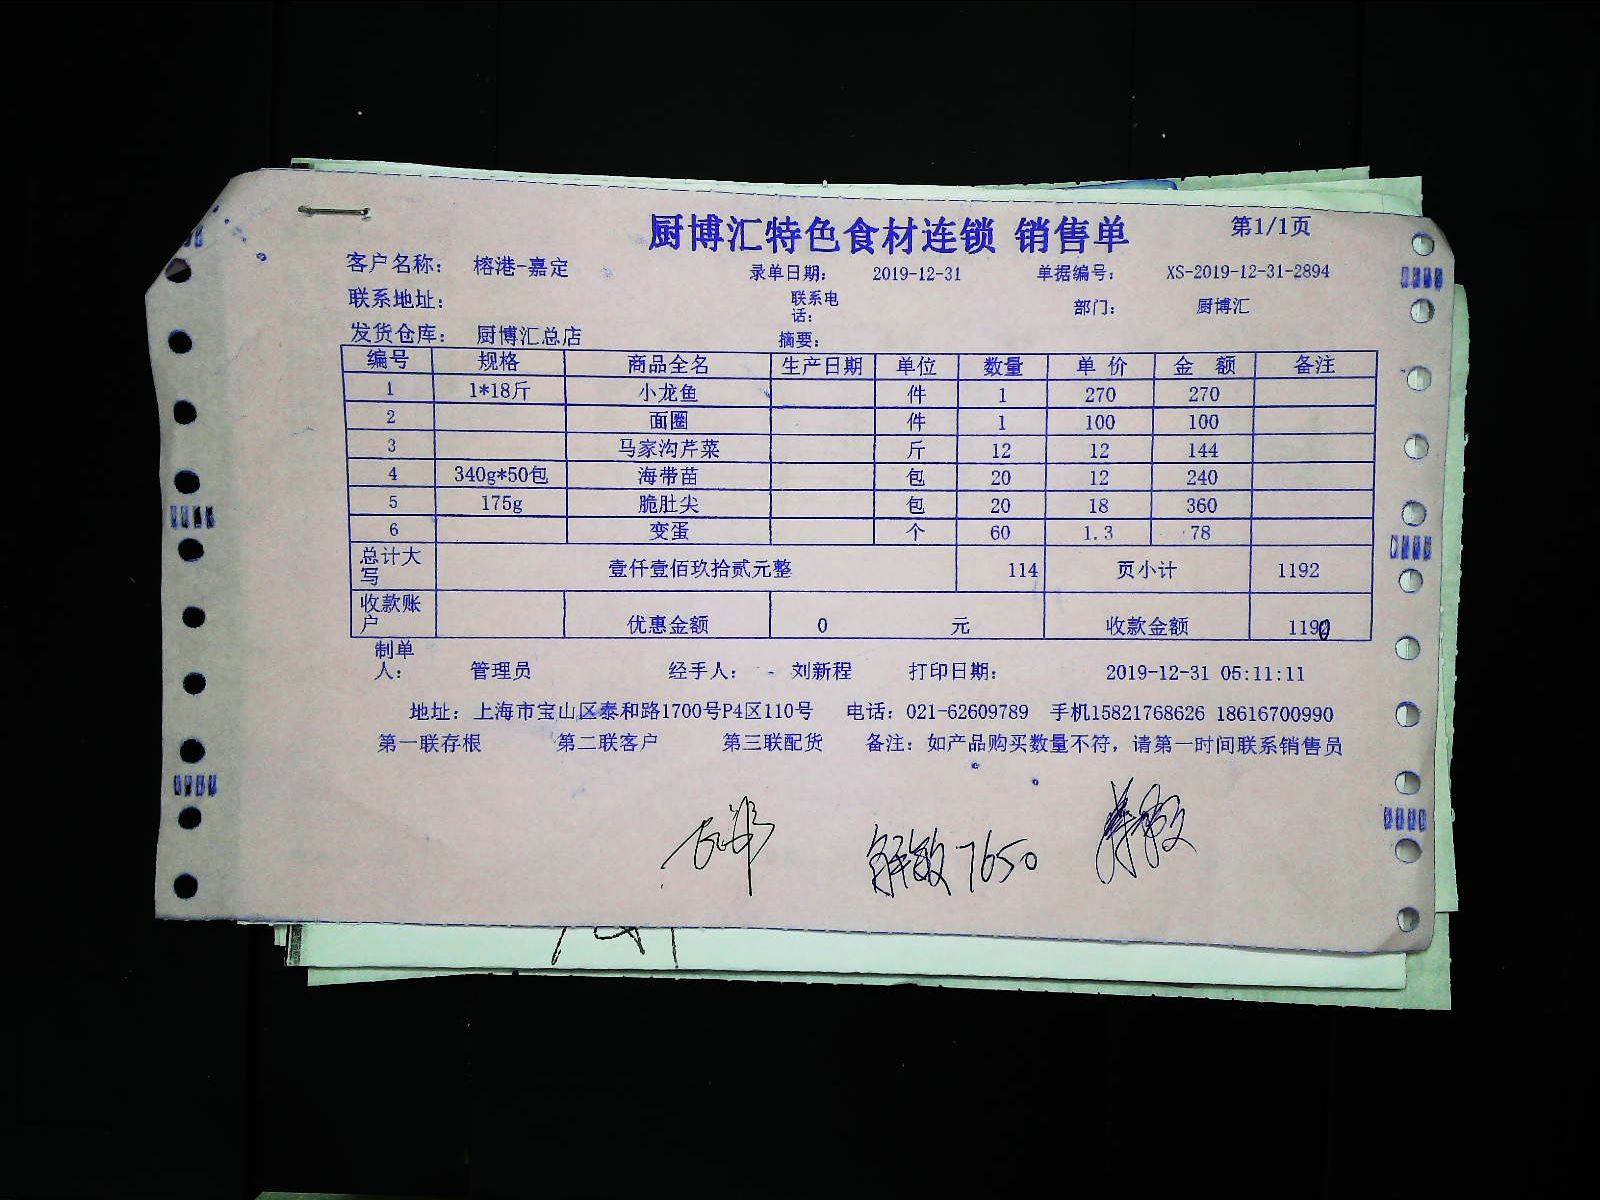 厨博汇特色食材连锁 销售单 第1/1页
客户名称： 榕港-嘉定 录单日期： 2019-12-31 单据编号： XS-2019-12-31-2894
联系地址： 联系电话： 部门： 厨博汇
发货仓库： 厨博汇总店 摘要：
编号 规格 商品全名 生产日期 单位 数量 单 价 金 额 备注
1 1*18斤 小龙鱼 件 1 270 270
2 面圈 件 1 100 100
3 马家沟芹菜 斤 12 12 144
4 340g*50包 海带苗 包 20 12 240
5 175g 脆肚尖 包 20 18 360
6 变蛋 个 60 1.3 78
总计大写 壹仟壹佰玖拾贰元整 114 页小计 1192
收款账户 优惠金额 0 元 收款金额 1190
制单人： 管理员 经手人： - 刘新程 打印日期： 2019-12-31 05:11:11
地址：上海市宝山区泰和路1700号P4区110号 电话：021-62609789 手机15821768626 18616700990
第一联存根 第二联客户 第三联配货 备注：如产品购买数量不符，请第一时间联系销售员
7650